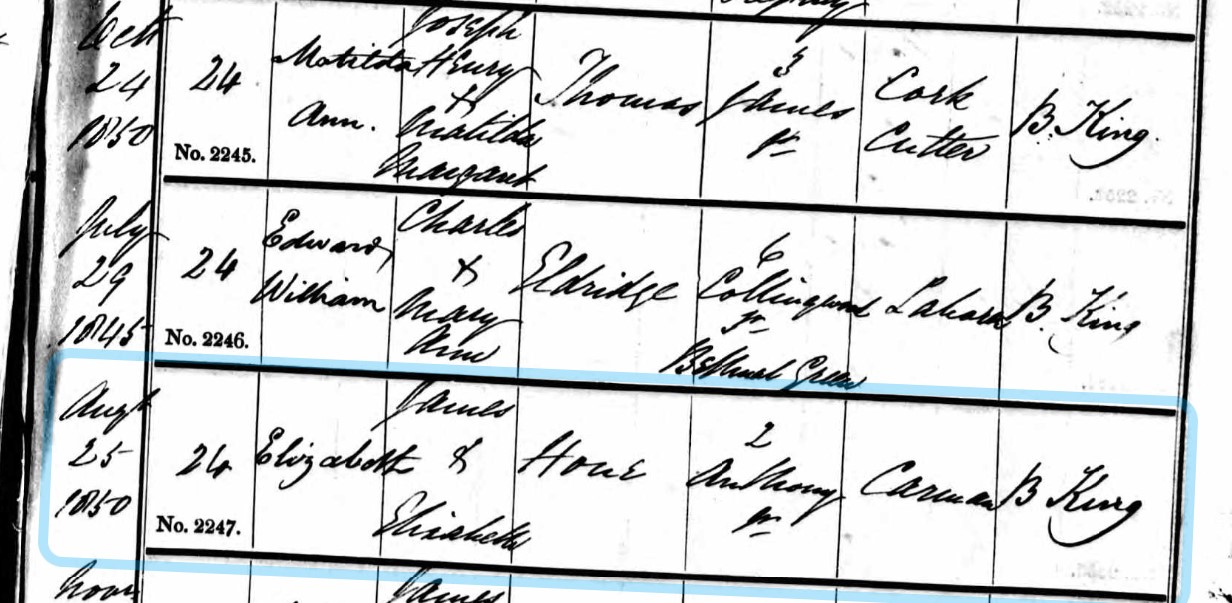 Octr
24
1850
24
No. 2245.
Matilda
Ann.
Joseph
Henry
&
Matilda
Margaret
Thomas
3
James
St
Cork
Cutter
B. King.
July
29
1845
24
No. 2246.
Edward
William
Charles
&
Mary
Ann
Eldridge
6
Collingwood
St
Bethnal Green
B. King
Augt
25
1850
24
No. 2247.
Elizabeth
James
&
Elizabeth
2
Anthony
St
Carman
B King
James